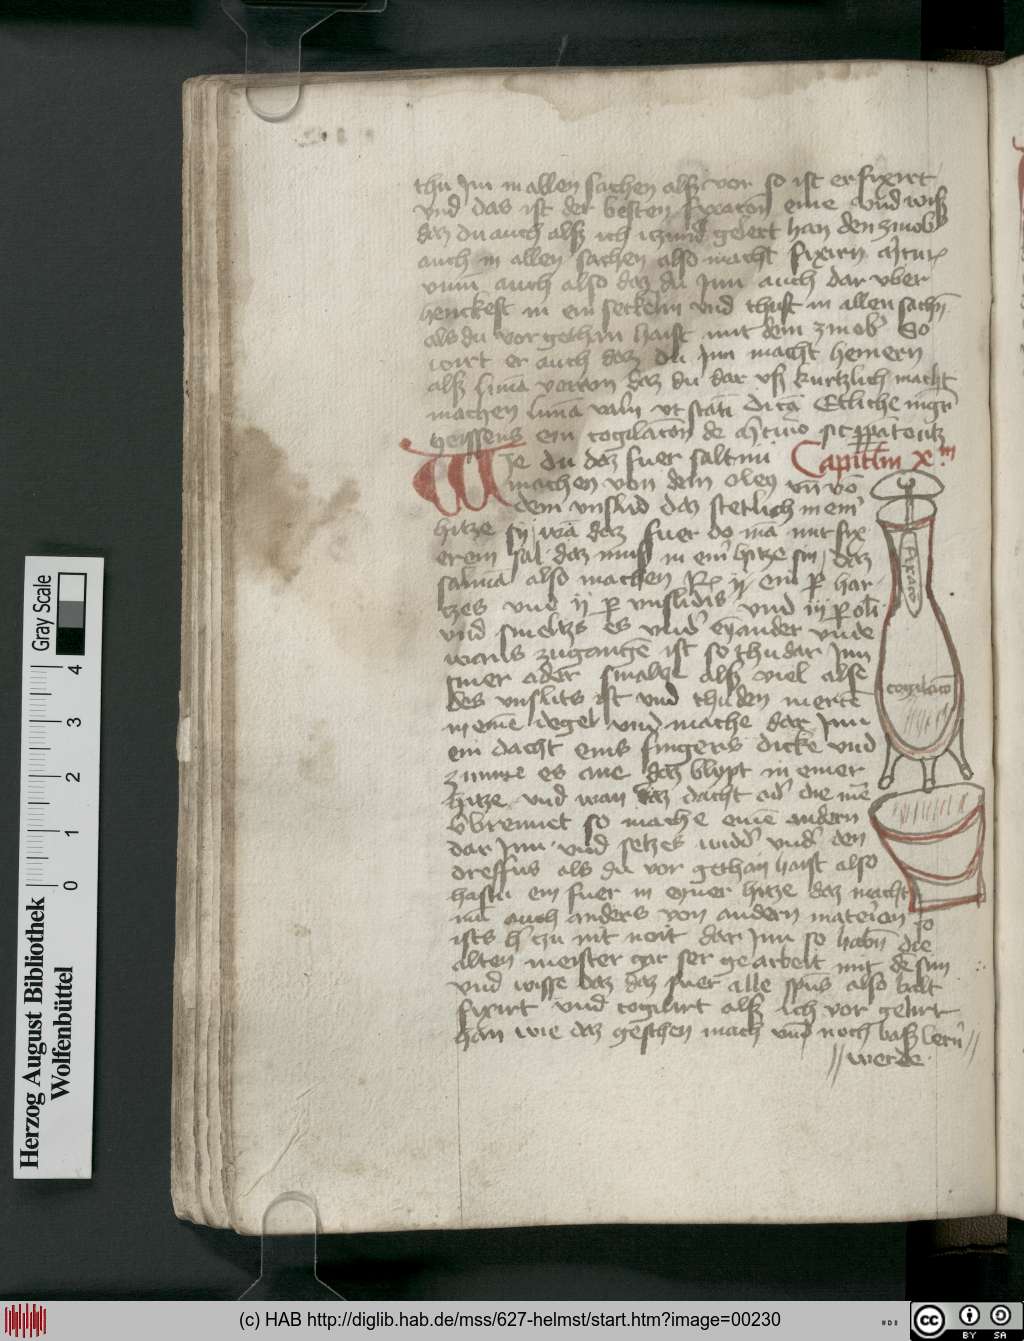 thu Jm in allen sachen alß vor so ist er fixirt
vnd das ist der besten fixacōn eine vnd wiß
daz du auch alß ich iczund gelert han den zinob̕
auch in allen sachen also macht fixirn
auch also daz du Jnn auch dar vber
henckest in ein seckelin vnd thust in allen sachn̄
als du vor gethan haist mit dem zinob̕ So
wirt er auch daz du Jnn macht hemern
alß luna vorron daz du dar vß kurtzlich macht
machen luna valn vt stati dicā Etliche
heissens ein cogilacōn de
Capitl̄m x.m
We du daz fuer saltnu
machen von dem oley vn̄ vō
dem vnslid daz stetlich in em̄
hitze sy wā daz fuer do mā mit fix
erem sal daz muß in ein hitze sin daz
saltnu also machen Rx ij ein p har
tzes vnd ij p vnslidis vnd iij p oli
vnd smeltzs es vnd̕ eynander vnde
wans zugangē ist so thu dar Jnn
smer ader smaltz alß viel alse
des vnslits ist vnd thu den mertē
in eine degel vnd mache dar Jnn
ein dacht eins fingers dicke vnd
zunte es ane daz blypt in einer
hitze vnd wan daz dacht ad̕ die mē
v̕brennet so mache eine andern
dar Jnn vnd setzes widd̕ vnd̕ den
dreffus als du vor gethan haist also
hastu ein fuer in eyner hitze daz macht
mā auch anders von andern materien so
ists h̕ tzu nit noit dar Jnn so habn̄ die
alten meister gar ser gearbeit mit de sun
vnd wisse daz daz fuer alle spūs also balt
fixirt vnd cogilirt alß ich vor gelirt
han wie daz geschen mach vnd noch baß lern̄
werde
cogilacō
Herzog August Bibliothek
Wolfenbüttel
0 1 2 3 4
Gray Scale
(c) HAB http://diglib.hab.de/mss/627-helmst/start.htm?image=00230
cc BY SA